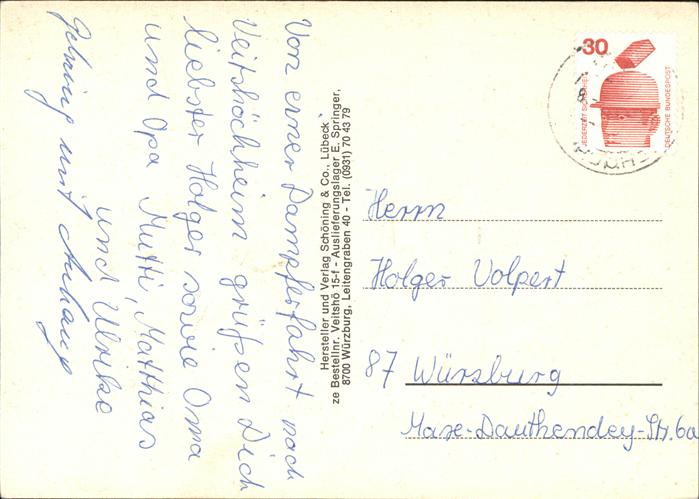 Von einer Dampferfahrt nach
Veitshöchheim grüßen Dich
liebster Holger sowie Oma
und Opa Mutti, Matthias
und Ulrike
mit
Hersteller und Verlag Schöning & Co., Lübeck
ze Bestellnr. Veitshö 15-f - Auslieferungslager E. Springer,
8700 Würzburg, Leitengraben 40 - Tel. (0931) 70 43 79
30
JEDERZEIT SICHERHEIT
DEUTSCHE BUNDESPOST
Herrn
Holger Volpert
87 Würzburg
Max-Dauthendey-Str. 6a